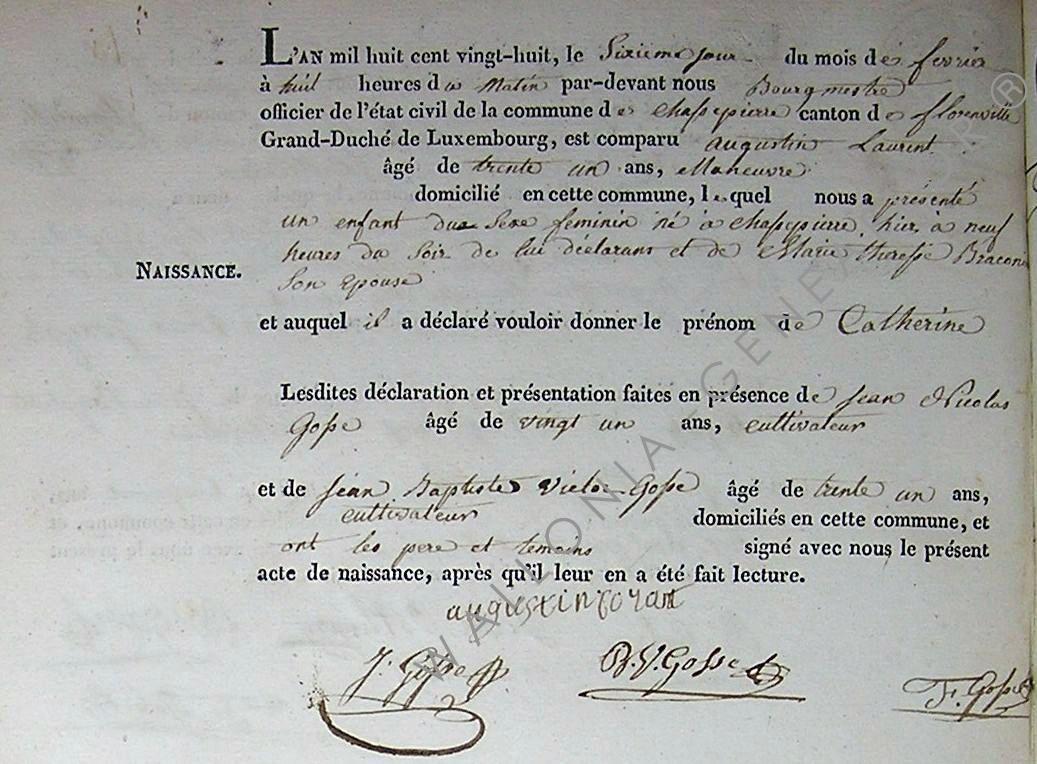 L'AN mil huit cent vingt-huit, le Sixieme jour du mois de fevrier
à huit heures du Matin par-devant nous Bourgmestre
officier de l'état civil de la commune de Chassepierre canton de florenville
Grand-Duché de Luxembourg, est comparu augustin Laurent
âgé de trente un ans, Maneuvre
domicilié en cette commune, lequel nous a présenté
un enfant du Sexe feminin né à Chassepierre, hier à neuf
heures du Soir de lui déclarans et de Marie therese Braconi
NAISSANCE.
Son Epouse
et auquel il a déclaré vouloir donner le prénom de Catherine
Lesdites déclaration et présentation faites en présence de jean Nicolas
Gosse âgé de vingt un ans, cultivateur
et de jean Baptiste victor Gosse âgé de trente un ans,
cultivateur domiciliés en cette commune, et
ont les pere et temoins signé avec nous le présent
acte de naissance, après qu'il leur en a été fait lecture.
augustin
J. Gosse
B. V. Gosse
F. Gosse
WALLONIA GENE